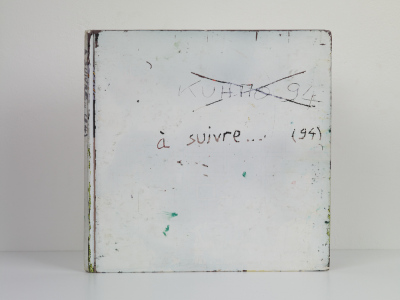 KUHMO 94
à suivre... (94)